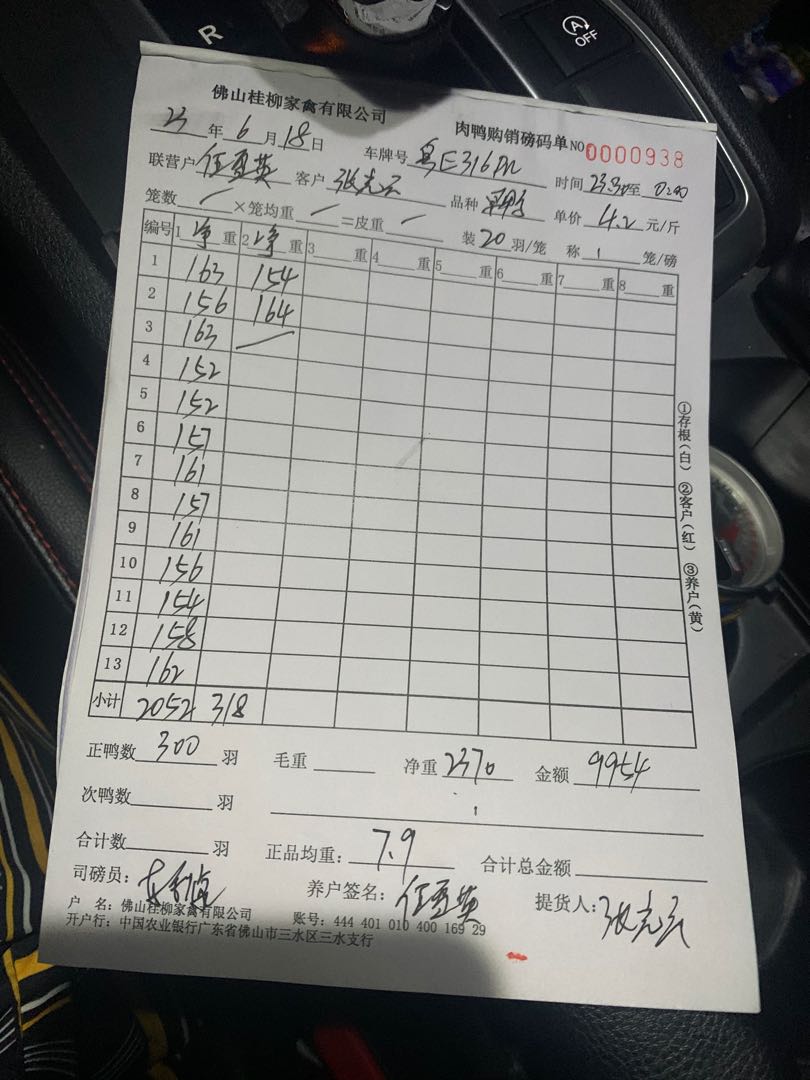 R
A OFF
佛山桂柳家禽有限公司
肉鸭购销磅码单 NO 0000938
23 年 6 月 18 日 车牌号 粤E316 时间 23:30 至 0:00
联营户 任亚英 客户 张 品种 单价 4.2 元/斤
笼数 / ×笼均重 / =皮重 / 装 20 羽/笼 称 1 笼/磅
编号 1 净 重 2 净 重 3 重 4 重 5 重 6 重 7 重 8 重
1 163 154
2 156 164
3 163 /
4 152
5 152
6 157
7 161
8 157
9 161
10 156
11 154
12 158
13 162
小计 2052 318
①存根(白) ②客户(红) ③养户(黄)
正鸭数 300 羽 毛重 净重 2370 金额 9954
次鸭数 羽
合计数 羽 正品均重: 7.9 合计总金额
司磅员: 养户签名: 任亚英 提货人: 张
户 名: 佛山桂柳家禽有限公司 账号: 444 401 010 400 169 29
开户行: 中国农业银行广东省佛山市三水区三水支行